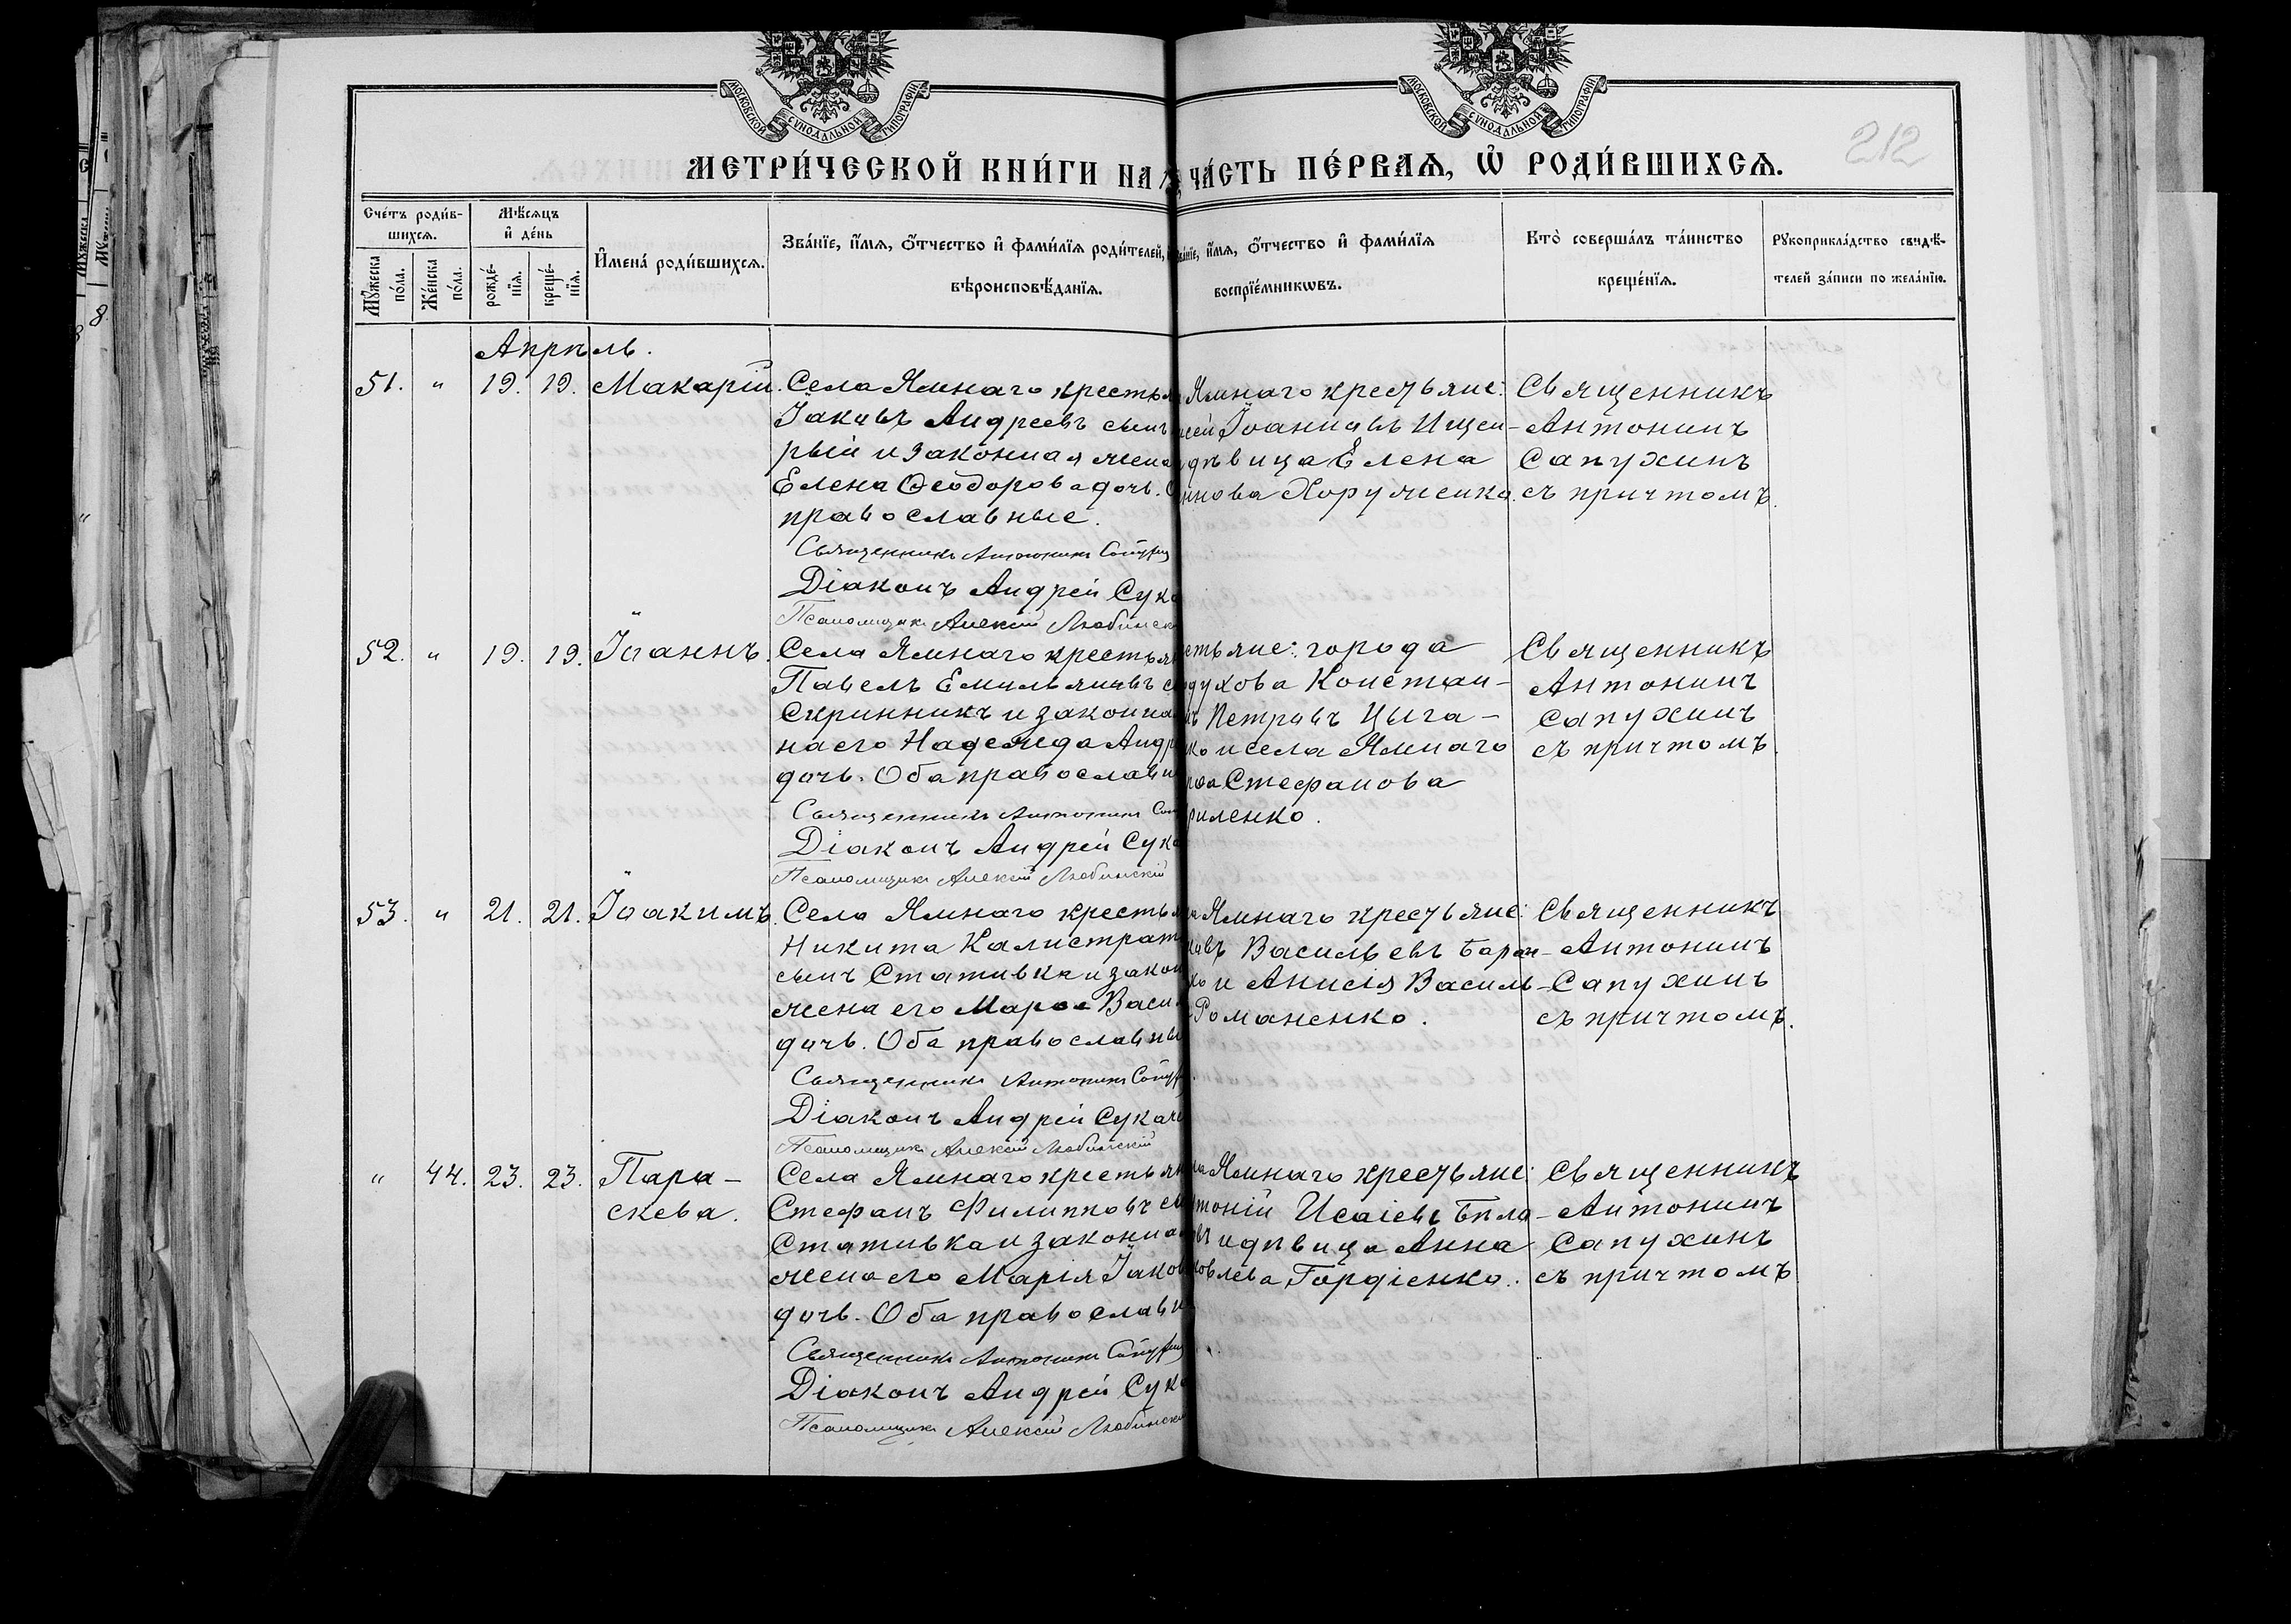 МОСКОВСКОЙ СУНОДАЛЬНОЙ ТИПОГРАФІИ
МОСКОВСКОЙ СУНОДАЛЬНОЙ ТИПОГРАФІИ
212
МЕТРИ́ЧЕСКОЙ КНИ́ГИ НА
ЧА́СТЬ ПЕ́РВАѦ, Ѡ РОДИ́ВШИХСѦ.
Сче́тъ роди́в-
шихсѧ.
Мѣ́сѧцъ
и҆ де́нь
Мꙋ́жеска
по́ла.
Же́нска
по́ла.
рожде́-
нїѧ.
креще́-
нїѧ.
И҆мена̀ роди́вшихсѧ.
Зва́нїе, и҆́мѧ, ѻ҆́тчество и҆ фами́лїѧ роди́телей,
вѣроисповѣ́данїѧ.
Зва́нїе, и҆́мѧ, ѻ҆́тчество и҆ фами́лїѧ
воспрїе́мникѡвъ.
Кто̀ соверша́лъ та́инство
креще́нїѧ.
Рꙋкоприкла́дство свидѣ́-
телей за́писи по жела́нїю.
Апрѣль.
51. " 19. 19. Макарій.
Села Ямнаго крестья
Іаковъ Андреевъ сынъ
рый и законная жена
Елена Ѳеодорова дочь. О
православные.
Священникъ Антонинъ Сапух
Діаконъ Андрей Сука
Псаломщикъ Алексій Любинск
Ямнаго крестьяне:
сей Іоанновъ Ищен-
дѣвица Елена
нова Хоруженко.
Священникъ
Антонинъ
Сапухинъ
съ причтомъ.
52. " 19. 19. Іоаннъ.
Села Ямнаго крестьян
Павелъ Емильяновъ с
Скринникъ и законна
на его Надежда Андр
дочь. Оба православн
Священникъ Антонинъ Сап
Діаконъ Андрей Сука
Псаломщикъ Алексій Любинскій
стьяне: города
духова Констан-
ъ Петровъ Цыга-
ко и села Ямнаго
Стефанова
риленко.
Священникъ
Антонинъ
Сапухинъ
съ причтомъ.
53. " 21. 21. Іоакимъ.
Села Ямнаго крестья
Никита Калистрат
сынъ Стативка и закон
жена его Марѳа Васи
дочь. Оба православны
Священникъ Антонинъ Сапух
Діаконъ Андрей Сукаче
Псаломщикъ Алексій Любинскій
а Ямнаго крестьяне:
овъ Васильевъ Баран-
ко и Анисія Василь-
Романенко.
Священникъ
Антонинъ
Сапухинъ
съ причтомъ.
" 44. 23. 23. Пара-
скева.
Села Ямнаго крестьян
Стефанъ Филипповъ сы
Стативка и законна
жена его Марія Іаков
дочь. Оба православн
Священникъ Антонинъ Сапухин
Діаконъ Андрей Сука
Псаломщикъ Алексій Любински
ла Ямнаго крестьяне:
тоній Исаіевъ Бѣла-
въ и дѣвица Анна
ковлева Гордіенко.
Священникъ
Антонинъ
Сапухинъ
съ причтомъ